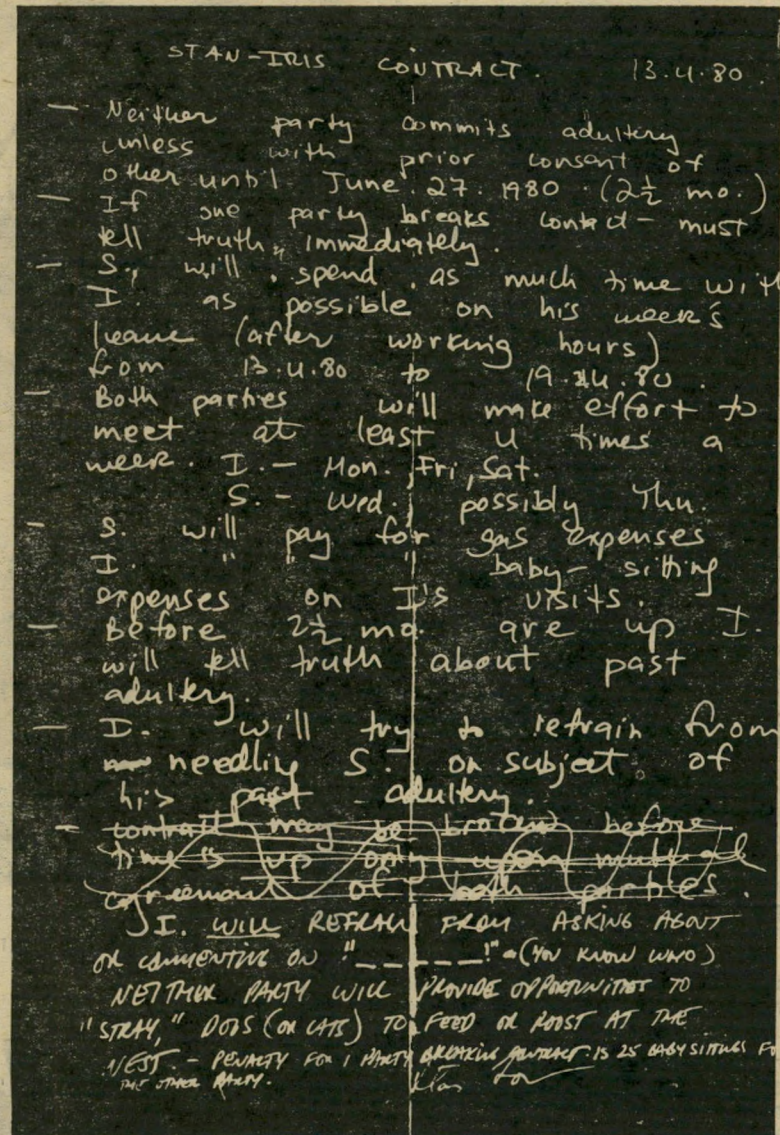 STAN-IRIS CONTRACT. 13.4.80.
— Neither party commits adultery
unless with prior consent of
other until June. 27. 1980. (2½ mo.)
— If one party breaks contact - must
tell truth, immediately.
— S. will spend as much time with
I. as possible on his week's
leave (after working hours)
from 13.4.80 to 19.4.80.
— Both parties will make effort to
meet at least 4 times a
week. I. - Mon., Fri, Sat.
S. - Wed. possibly Thu.
— S. will pay for gas expenses
I. " " " baby-sitting
expenses on I's visits.
— Before 2½ mo. are up I.
will tell truth about past
adultery.
— I. will try to refrain from
needling S. on subject of
his past adultery.
— contract may be broken before
time is up only upon mutual
agreement of both parties.
I. WILL REFRAIN FROM ASKING ABOUT
OR COMMENTING ON "_ _ _ _ _!" - (YOU KNOW WHO)
NEITHER PARTY WILL PROVIDE OPPORTUNITIES TO
"STRAY," DOGS (OR CATS) TO FEED OR ROOST AT THE
NEST. - PENALTY FOR 1 PARTY BREAKING CONTRACT IS 25 BABYSITTINGS FO
THE OTHER PARTY. Stan